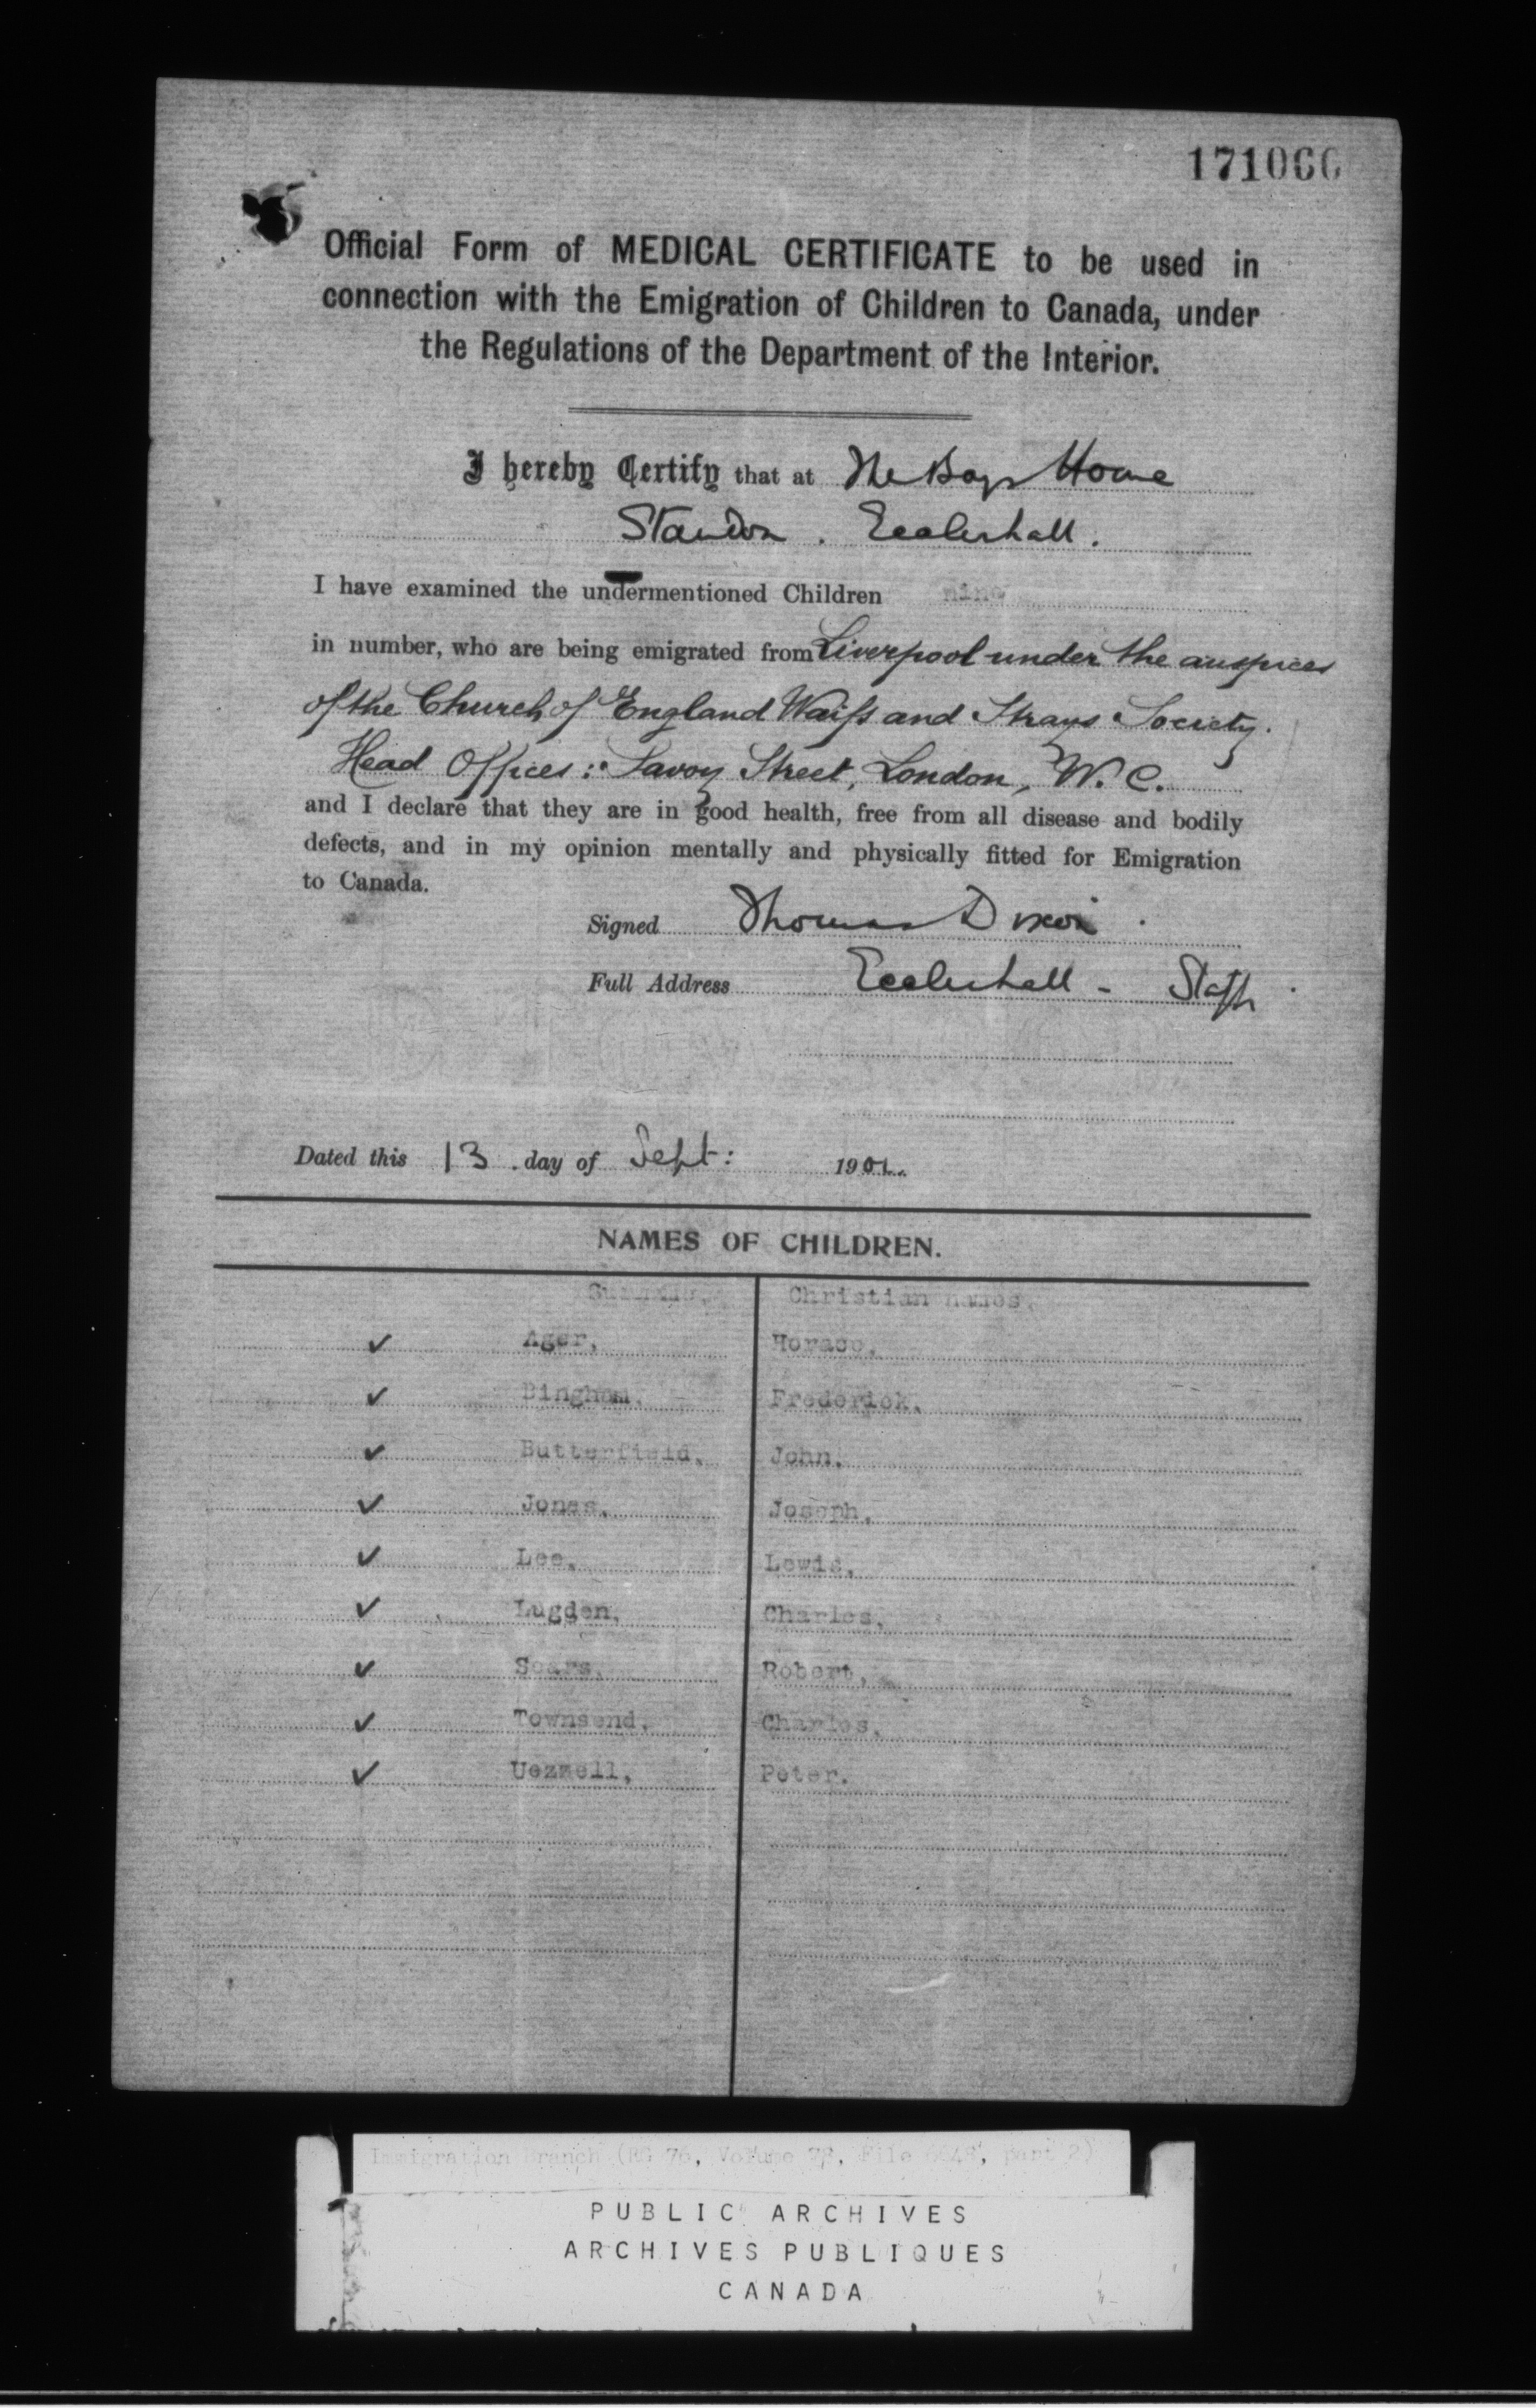 171066
Official Form of MEDICAL CERTIFICATE to be used in
connection with the Emigration of Children to Canada, under
the Regulations of the Department of the Interior.
I hereby Certify that at The Boys Home
Standon . Eccleshall .
I have examined the undermentioned Children nine
in number, who are being emigrated from Liverpool under the auspices
of the Church of England Waifs and Strays Society.
Head Offices: Savoy Street, London, W. C.
and I declare that they are in good health, free from all disease and bodily
defects, and in my opinion mentally and physically fitted for Emigration
to Canada.
Signed Thomas Dixon
Full Address Eccleshall - Staffs
Dated this 13 day of Sept: 1901.
NAMES OF CHILDREN.
Surnames, Christian Names,
✓ Ager, Horace,
✓ Bingham, Frederick,
✓ Butterfield, John,
✓ Jones, Joseph,
✓ Lee, Lewis,
✓ Lugden, Charles,
✓ Sears, Robert,
✓ Townsend, Charles,
✓ Uezzell, Peter.
Immigration Branch (RG 76, Volume 78, File 6648, part 2)
PUBLIC ARCHIVES
ARCHIVES PUBLIQUES
CANADA